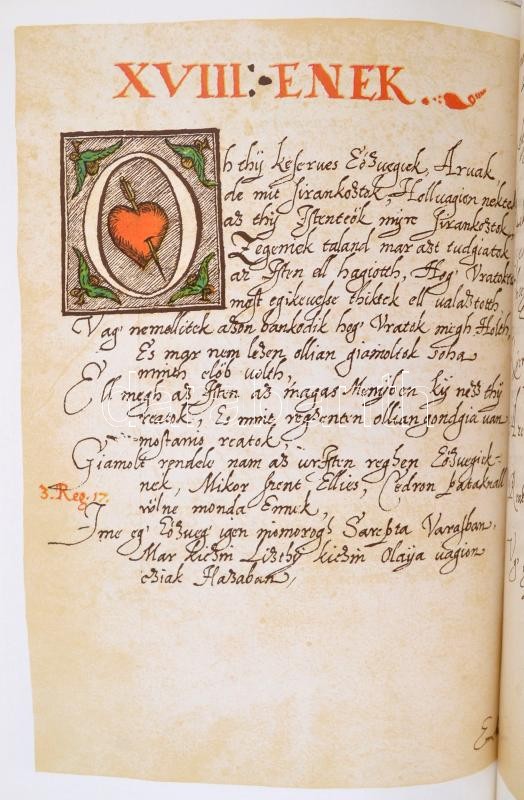 XVIII: ENEK
Oh thÿ keserues Eôzuegiek, Aruak
de mit sirankoztok, Holluagion néktek
az thÿ Istenteök mire sirankoztok
Zegeniek taland mar azt tudgiatok
az Isten ell hagiotth, Hog Vratoktu
most egikeuese thiktek ell valaztotth,
Vag nemellitek azon bankodik hog Vratok migh Holth,
Es mar nem lezen ollian giamoltok soha
minth elôb volth,
Ell megh az Isten az magas Menÿben kÿ nez thÿ
reatok, Es mint regenten olliangondgia van
mostanis reatok,
Giamolt rendelv nam az vr Isten regzen Eôzuegiek-
nek, Mikor szent Ellies, Cedron pataknall
volne monda Ennik,
3. Reg. 17.
Ime eg Eôzueg igen niomorog Sarepta Varasban,
Mar kiczin Liszthÿ kiczin Olaÿa vagion
cziak Hazaban,